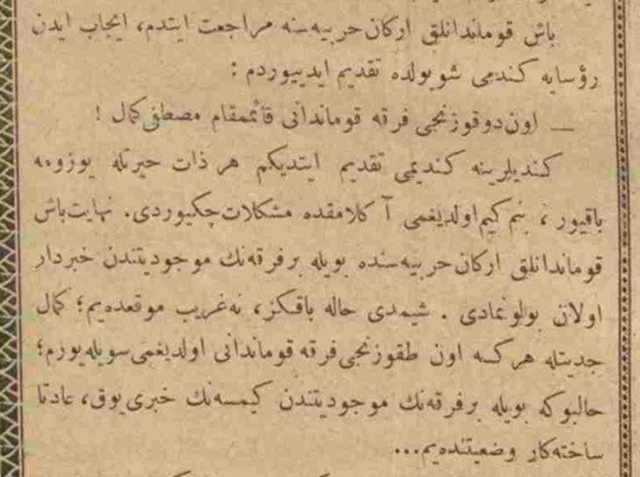 باش قوماندانلق اركان حربیه‌سنه مراجعت ایتدم، ایجاب ایدن
رؤسایه كندمی شو یولده تقدیم ایدییوردم :
— اون دوقوزنجی فرقه قوماندانی قائممقام مصطفی كمال !
كندیلرینه كندیمی تقدیم ایتدیكم هر ذات حیرتله یوزومه
باقیور ، بنم كیم اولدیغمی آ كلامقده مشكلات چكیوردی. نهایت باش
قوماندانلق اركان حربیه‌سنده بویله بر فرقه‌نك موجودیتندن خبردار
اولان بولونمادی . شیمدی حاله باقكز، نه غریب موقعده‌یم؛ كمال
جدیتله هر كسه اون طقوزنجی فرقه قوماندانی اولدیغمی سویله‌یورم؛
حالبوكه بویله بر فرقه‌نك موجودیتندن كیمسه‌نك خبری یوق، عادتا
ساخته‌كار وضعیتنده‌یم...